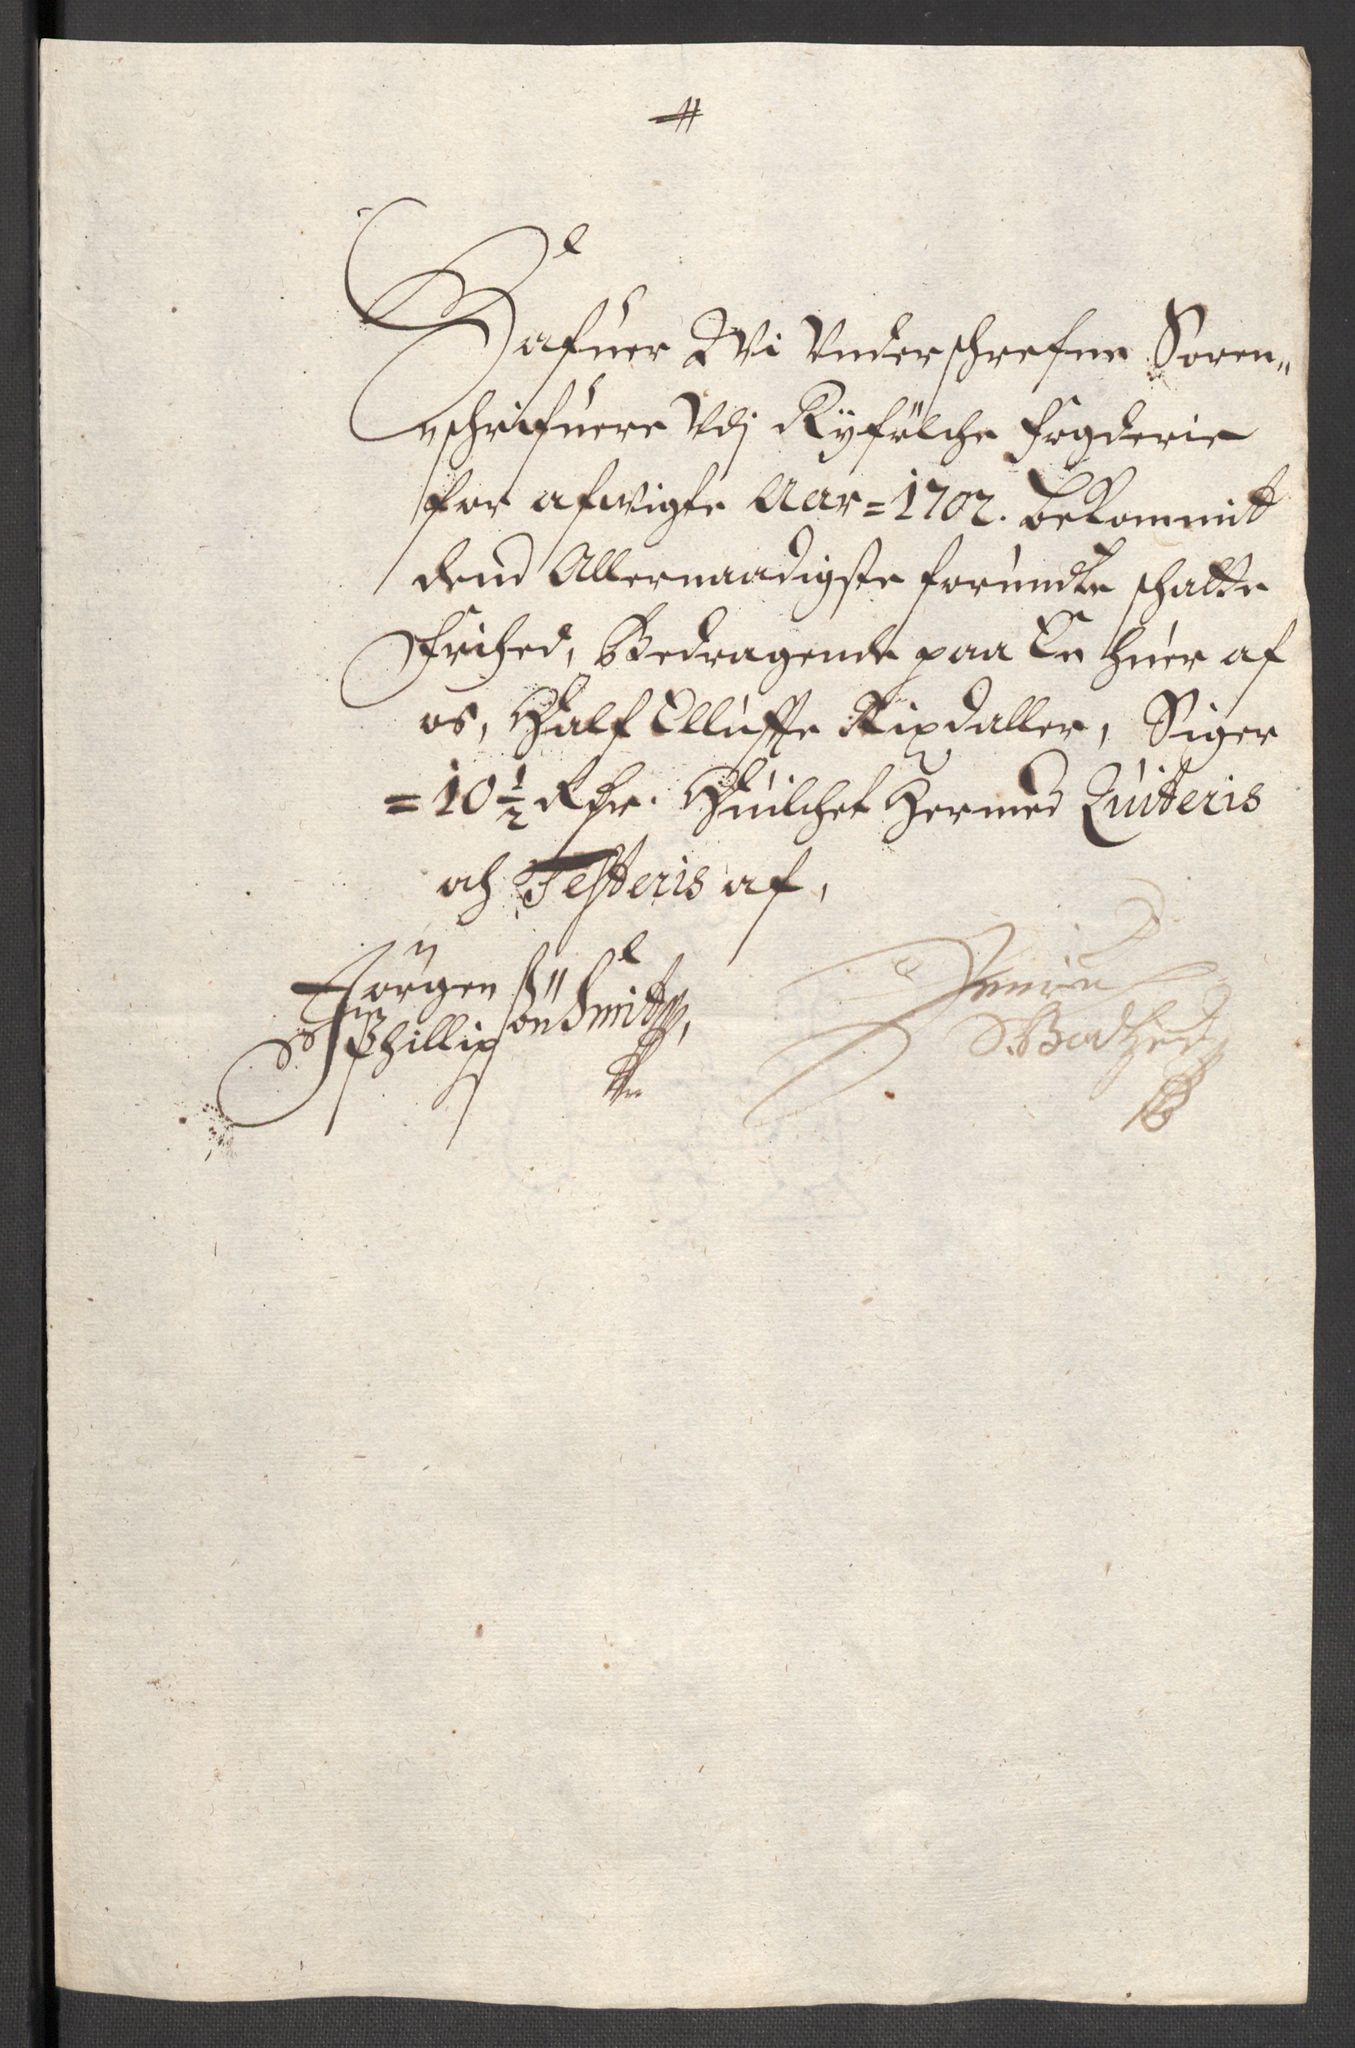 Hafuer Wi Underschrefne Soren„
schrifuere Udj Ryfylche Fogderie
for afvigte Aar = 1702. bekommit
dend Allernaadigste forundte schatte
Frihed, Bedragende paa En huer af
os, Half Elluffte Rixdaller, Siger
= 10 1/2 Rdr. Huilchet Hermed Quiteris
och Testeris af,
Jörgen
Phillipsön Smit
Bodsed